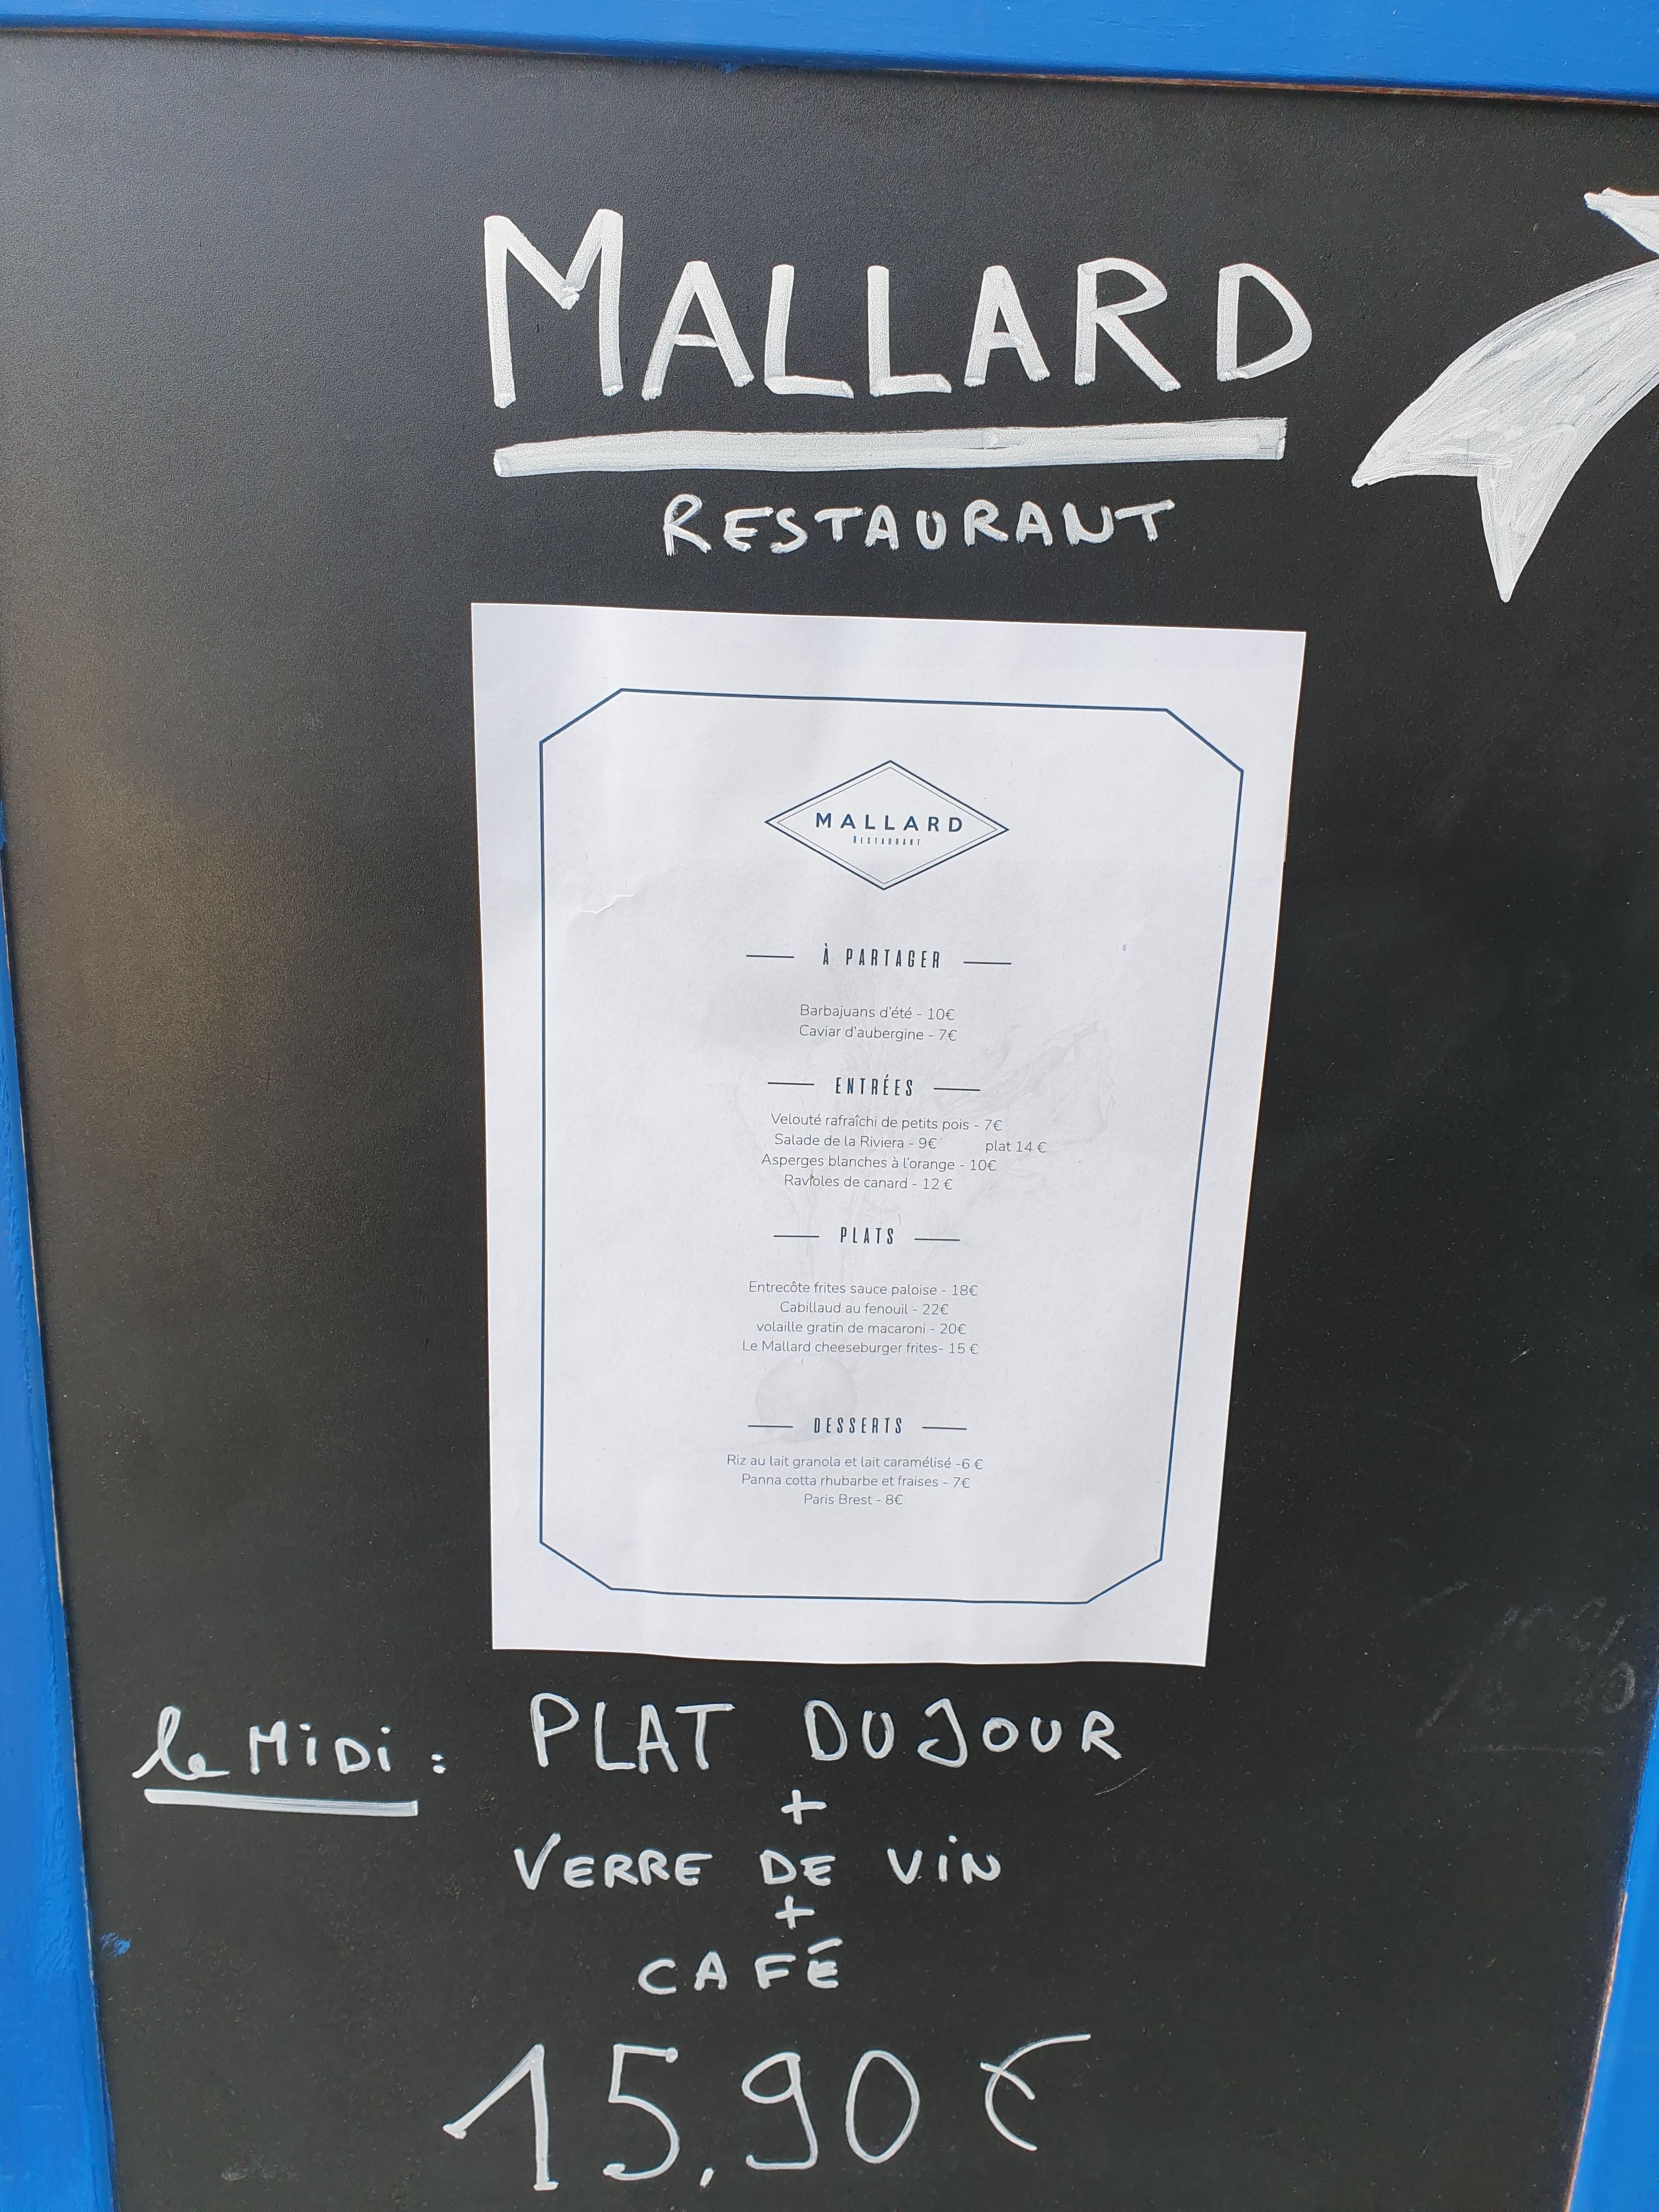 MALLARD
RESTAURANT
MALLARD
RESTAURANT
À PARTAGER
Barbajuans d'été - 10€
Caviar d'aubergine - 7€
ENTRÉES
Velouté rafraîchi de petits pois - 7€
Salade de la Riviera - 9€ plat 14 €
Asperges blanches à l'orange - 10€
Ravioles de canard - 12 €
PLATS
Entrecôte frites sauce paloise - 18€
Cabillaud au fenouil - 22€
volaille gratin de macaroni - 20€
Le Mallard cheeseburger frites- 15 €
DESSERTS
Riz au lait granola et lait caramélisé -6 €
Panna cotta rhubarbe et fraises - 7€
Paris Brest - 8€
le MiDi : PLAT DU JOUR
+
VERRE DE ViN
+
CAFÉ
15,90 €